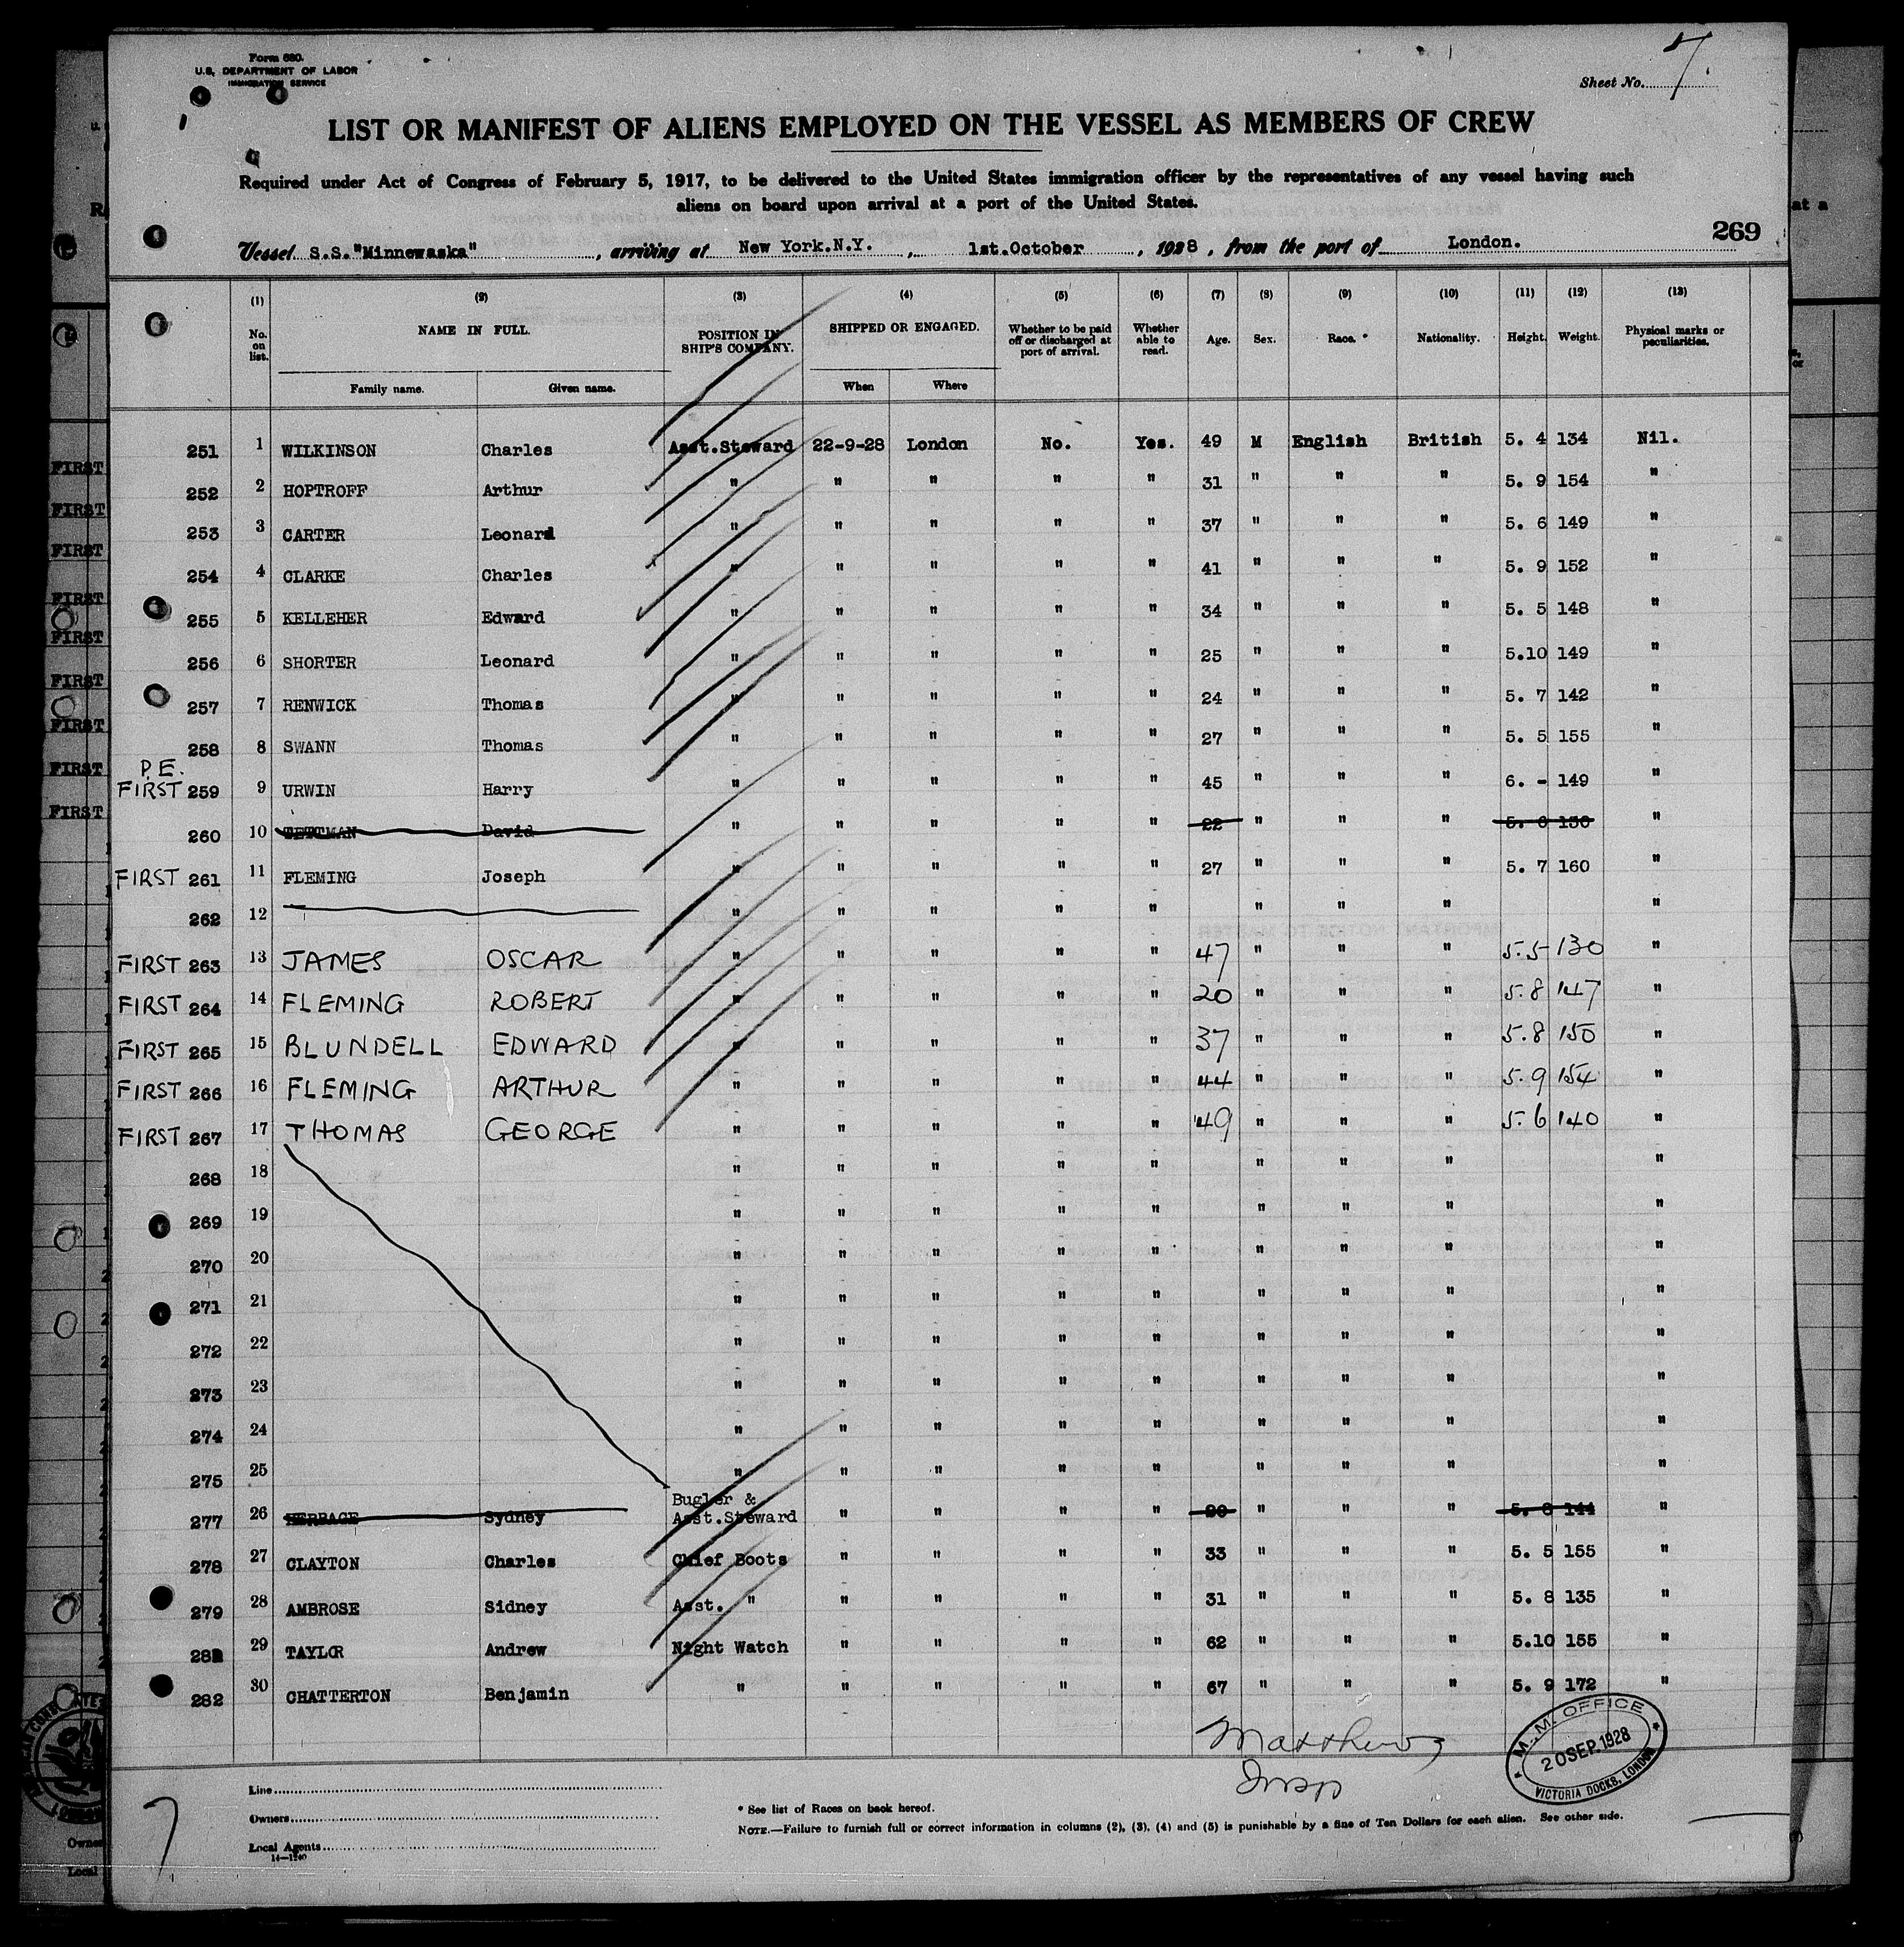 Form 680.
U.S. DEPARTMENT OF LABOR
IMMIGRATION SERVICE
Sheet No. 7.
LIST OR MANIFEST OF ALIENS EMPLOYED ON THE VESSEL AS MEMBERS OF CREW
Required under Act of Congress of February 5, 1917, to be delivered to the United States immigration officer by the representatives of any vessel having such
aliens on board upon arrival at a port of the United States.
269
Vessel S.S."Minnewaska", arriving at New York.N.Y., 1st.October, 1928, from the port of London.
(1) (2) (3) (4) (5) (6) (7) (8) (9) (10) (11) (12) (13)
No. on list. NAME IN FULL. POSITION IN SHIP'S COMPANY. SHIPPED OR ENGAGED. Whether to be paid off or discharged at port of arrival. Whether able to read. Age. Sex. Race.* Nationality. Height. Weight. Physical marks or peculiarities.
Family name. Given name. When Where
251 1 WILKINSON Charles Asst.Steward 22-9-28 London No. Yes. 49 M English British 5. 4 134 Nil.
252 2 HOPTROFF Arthur " " " " " 31 " " " 5. 9 154 "
253 3 CARTER Leonard " " " " " 37 " " " 5. 6 149 "
254 4 CLARKE Charles " " " " " 41 " " " 5. 9 152 "
255 5 KELLEHER Edward " " " " " 34 " " " 5. 5 148 "
256 6 SHORTER Leonard " " " " " 25 " " " 5.10 149 "
257 7 RENWICK Thomas " " " " " 24 " " " 5. 7 142 "
258 8 SWANN Thomas " " " " " 27 " " " 5. 5 155 "
P.E.
FIRST 259 9 URWIN Harry " " " " " 45 " " " 6. - 149 "
260 10 David " " " " " 22 " " " "
FIRST 261 11 FLEMING Joseph " " " " " 27 " " " 5. 7 160 "
262 12 " " " " " " " " "
FIRST 263 13 JAMES OSCAR " " " " " 47 " " " 5.5 130 "
FIRST 264 14 FLEMING ROBERT " " " " " 20 " " " 5.8 147 "
FIRST 265 15 BLUNDELL EDWARD " " " " " 37 " " " 5.8 150 "
FIRST 266 16 FLEMING ARTHUR " " " " " 44 " " " 5.9 154 "
FIRST 267 17 THOMAS GEORGE " " " " " 49 " " " 5.6 140 "
268 18 " " " " " " " " "
269 19 " " " " " " " " "
270 20 " " " " " " " " "
271 21 " " " " " " " " "
272 22 " " " " " " " " "
273 23 " " " " " " " " "
274 24 " " " " " " " " "
275 25 " " " " " " " " "
Bugler &
277 26 HERBAGE Sydney Asst.Steward " " " " " " " 5. 8 144 "
278 27 CLAYTON Charles Chief Boots " " " " 33 " " " 5. 5 155 "
279 28 AMBROSE Sidney Asst. " " " " " 31 " " " 5. 8 135 "
29 TAYLOR Andrew Night Watch " " " " 62 " " " 5.10 155 "
282 30 CHATTERTON Benjamin " " " " " 67 " " " 5. 9 172 "
Matthews
Insp
M.M. OFFICE
20 SEP. 1928
VICTORIA DOCKS, LONDON
Line
Owners
Local Agents
14—1240
7
* See list of Races on back hereof.
NOTE.—Failure to furnish full or correct information in columns (2), (3), (4) and (5) is punishable by a fine of Ten Dollars for each alien. See other side.
FIRST
FIRST
FIRST
FIRST
FIRST
FIRST
FIRST
FIRST
FIRST
Owner
Local
at a